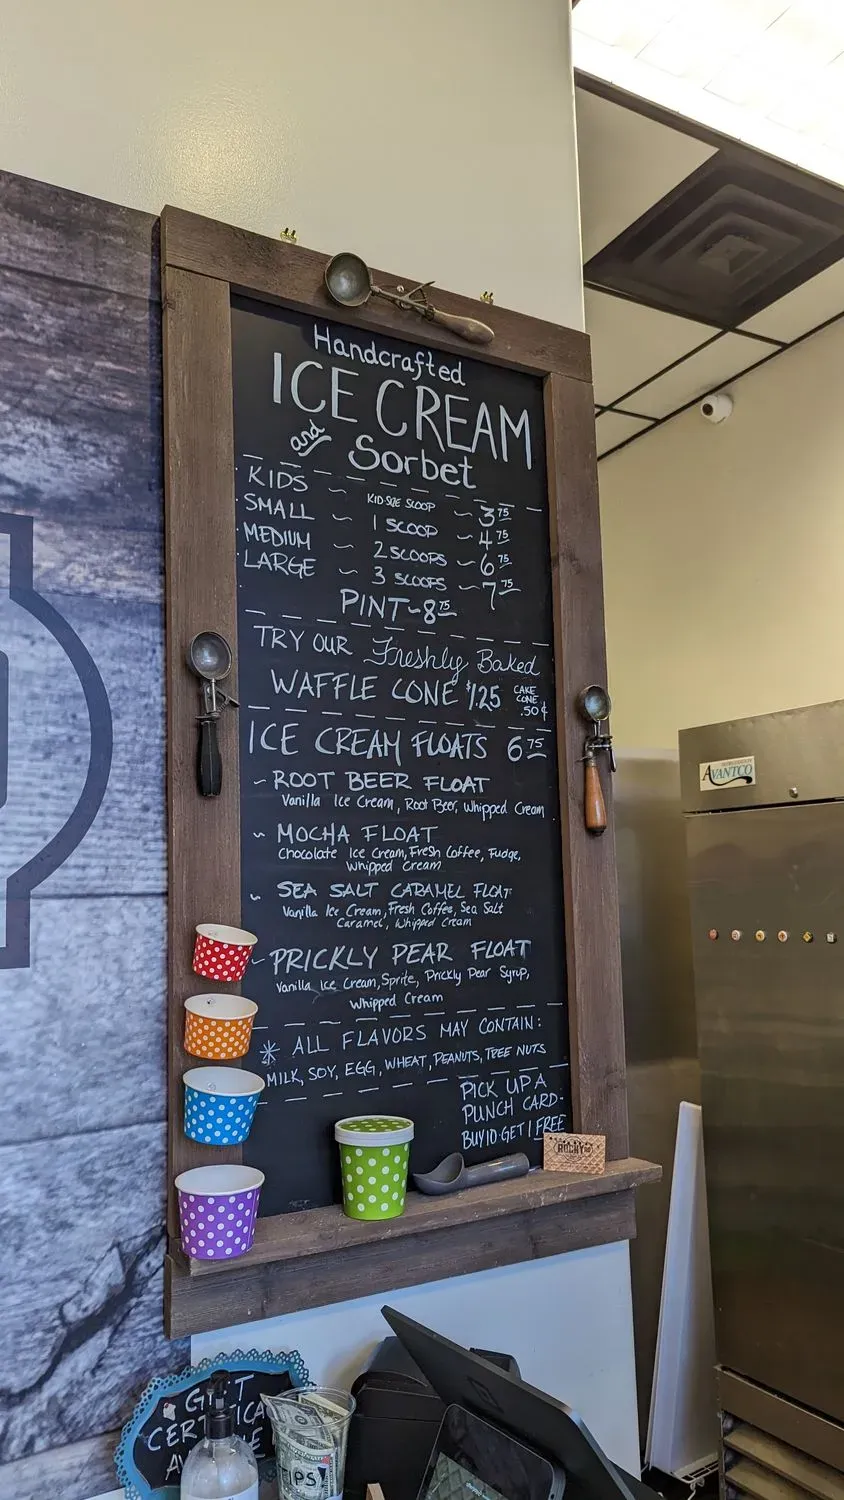 Handcrafted
ICE CREAM
and Sorbet
KIDS ~ KID-SIZE SCOOP ~ 3 75
SMALL ~ 1 SCOOP ~ 4 75
MEDIUM ~ 2 SCOOPS ~ 6 75
LARGE ~ 3 SCOOPS ~ 7 75
PINT ~ 8 75
TRY OUR Freshly Baked
WAFFLE CONE $1.25
CAKE
CONE
.50¢
ICE CREAM FLOATS 6 75
~ ROOT BEER FLOAT
Vanilla Ice Cream, Root Beer, Whipped Cream
~ MOCHA FLOAT
Chocolate Ice Cream, Fresh Coffee, Fudge,
Whipped Cream
~ SEA SALT CARAMEL FLOAT
Vanilla Ice Cream, Fresh Coffee, Sea Salt
Caramel, Whipped Cream
~ PRICKLY PEAR FLOAT
Vanilla Ice Cream, Sprite, Prickly Pear Syrup,
Whipped Cream
* ALL FLAVORS MAY CONTAIN:
MILK, SOY, EGG, WHEAT, PEANUTS, TREE NUTS
PICK UP A
PUNCH CARD-
BUY 10-GET 1 FREE
ROCKY
AVANTCO
GIFT
CERTIFICA
TIPS